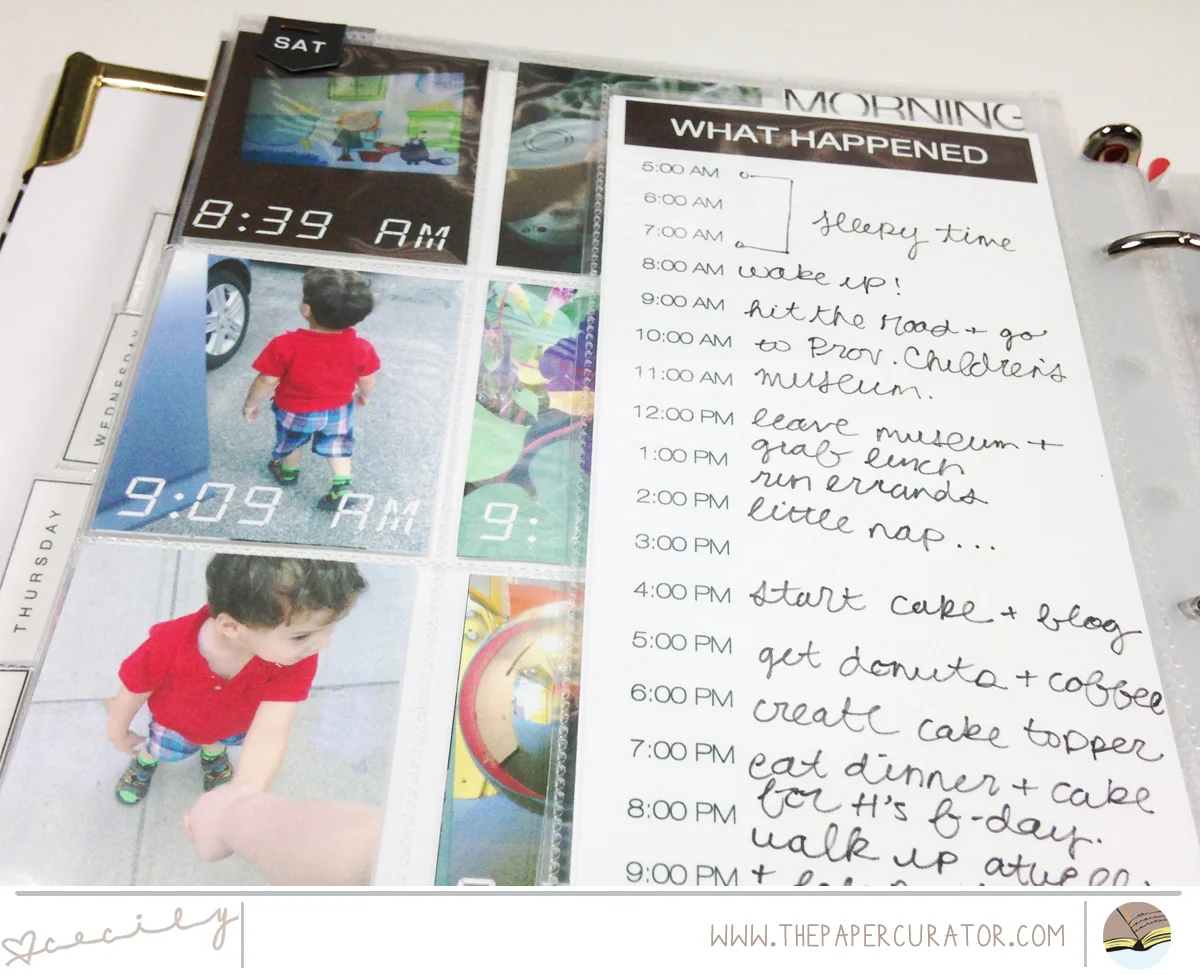 SAT
8:39 AM
9:09 AM
9:
WEDNESDAY
THURSDAY
MORNING
WHAT HAPPENED
5:00 AM
6:00 AM sleepy time
7:00 AM
8:00 AM wake up!
9:00 AM hit the road + go
10:00 AM to Prov. Children's
11:00 AM museum.
12:00 PM leave museum +
1:00 PM grab lunch
run errands
2:00 PM little nap...
3:00 PM
4:00 PM start cake + blog
5:00 PM get donuts + coffee
6:00 PM create cake topper
7:00 PM eat dinner + cake
8:00 PM for H's b-day.
walk up
9:00 PM +
cecily
WWW.THEPAPERCURATOR.COM